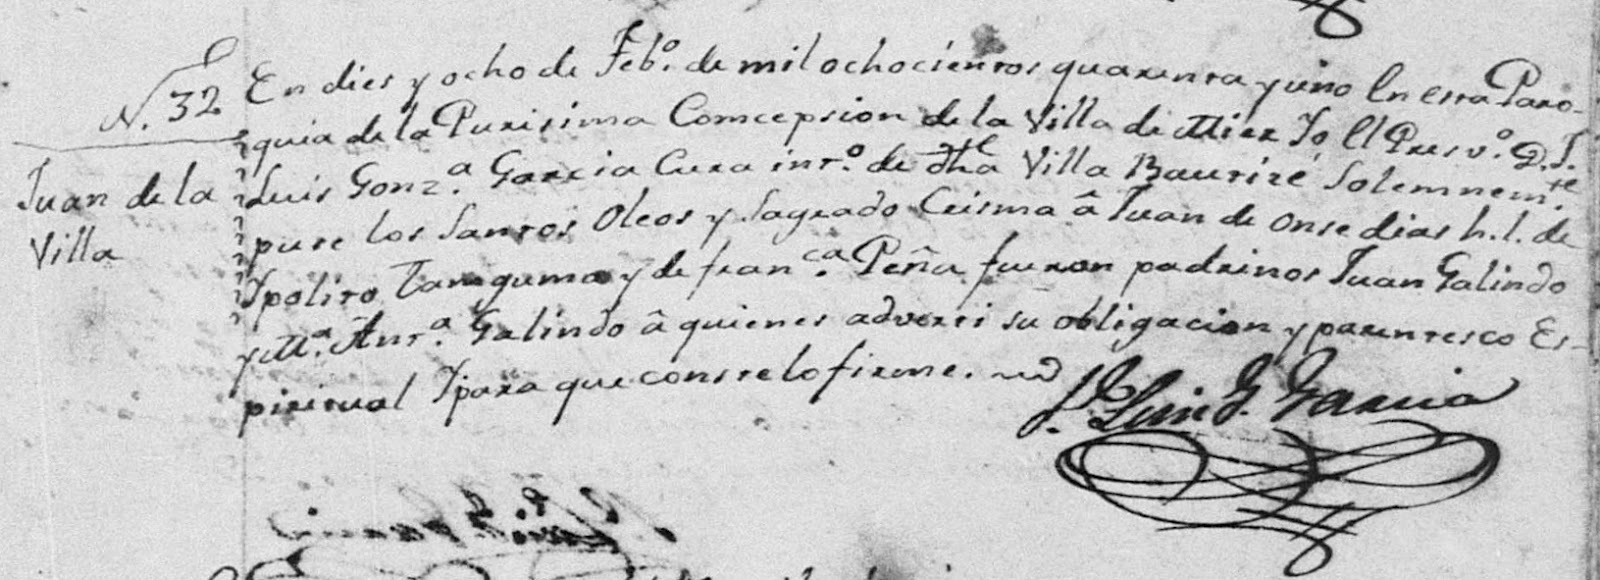 N. 32
Juan de la
Villa
En dies y ocho de Feb.º de mil ochocientos quarenta y uno En esta Parro-
quia de la Purisima Comcepsion de la Villa de Mier Yo El Presv.º D. J.
Luis Gonz.ª Garcia Cura int.º de dha Villa Bautizé Solemnem.te
puse los Santos Oleos y Sagrado Crisma â Juan de onse dias h. l. de
Ypolito Tanguma y de fran.ca Peña fueron padrinos Juan Galindo
y M.ª Ant.ª Galindo â quienes adverti su obligacion y parentesco Es-
piritual Y para que conste lo firme.
J. Luis G. Garcia